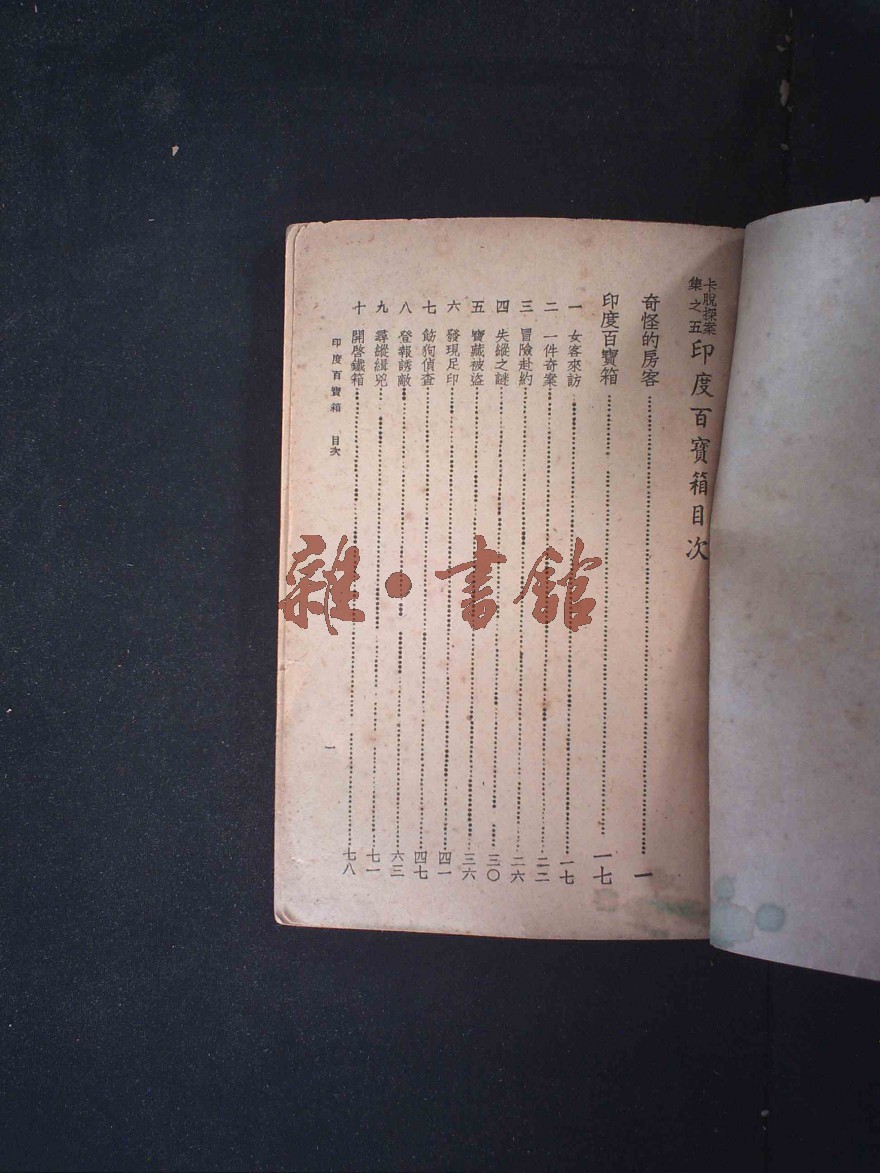 卡脫探案
集之五
印度百寶箱目次
奇怪的房客 一
印度百寶箱 一七
一 女客來訪 一七
二 一件奇案 二二
三 冒險赴約 二六
四 失縱之謎 三〇
五 寶藏被盜 三六
六 發現足印 四一
七 飭狗偵查 四七
八 登報誘敵 六三
九 尋縱緝兇 七一
十 開啓鐵箱 七八
印度百寶箱 目次
一
雜·書館